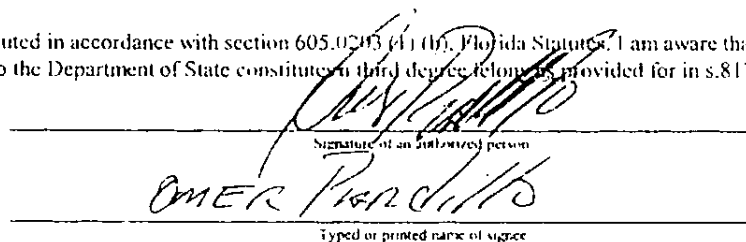 uted in accordance with section 605.0203 (1) (b), Florida Statutes. I am aware tha
o the Department of State constitutes a third degree felony as provided for in s.81
Signature of an authorized person
OMER
Typed or printed name of signee